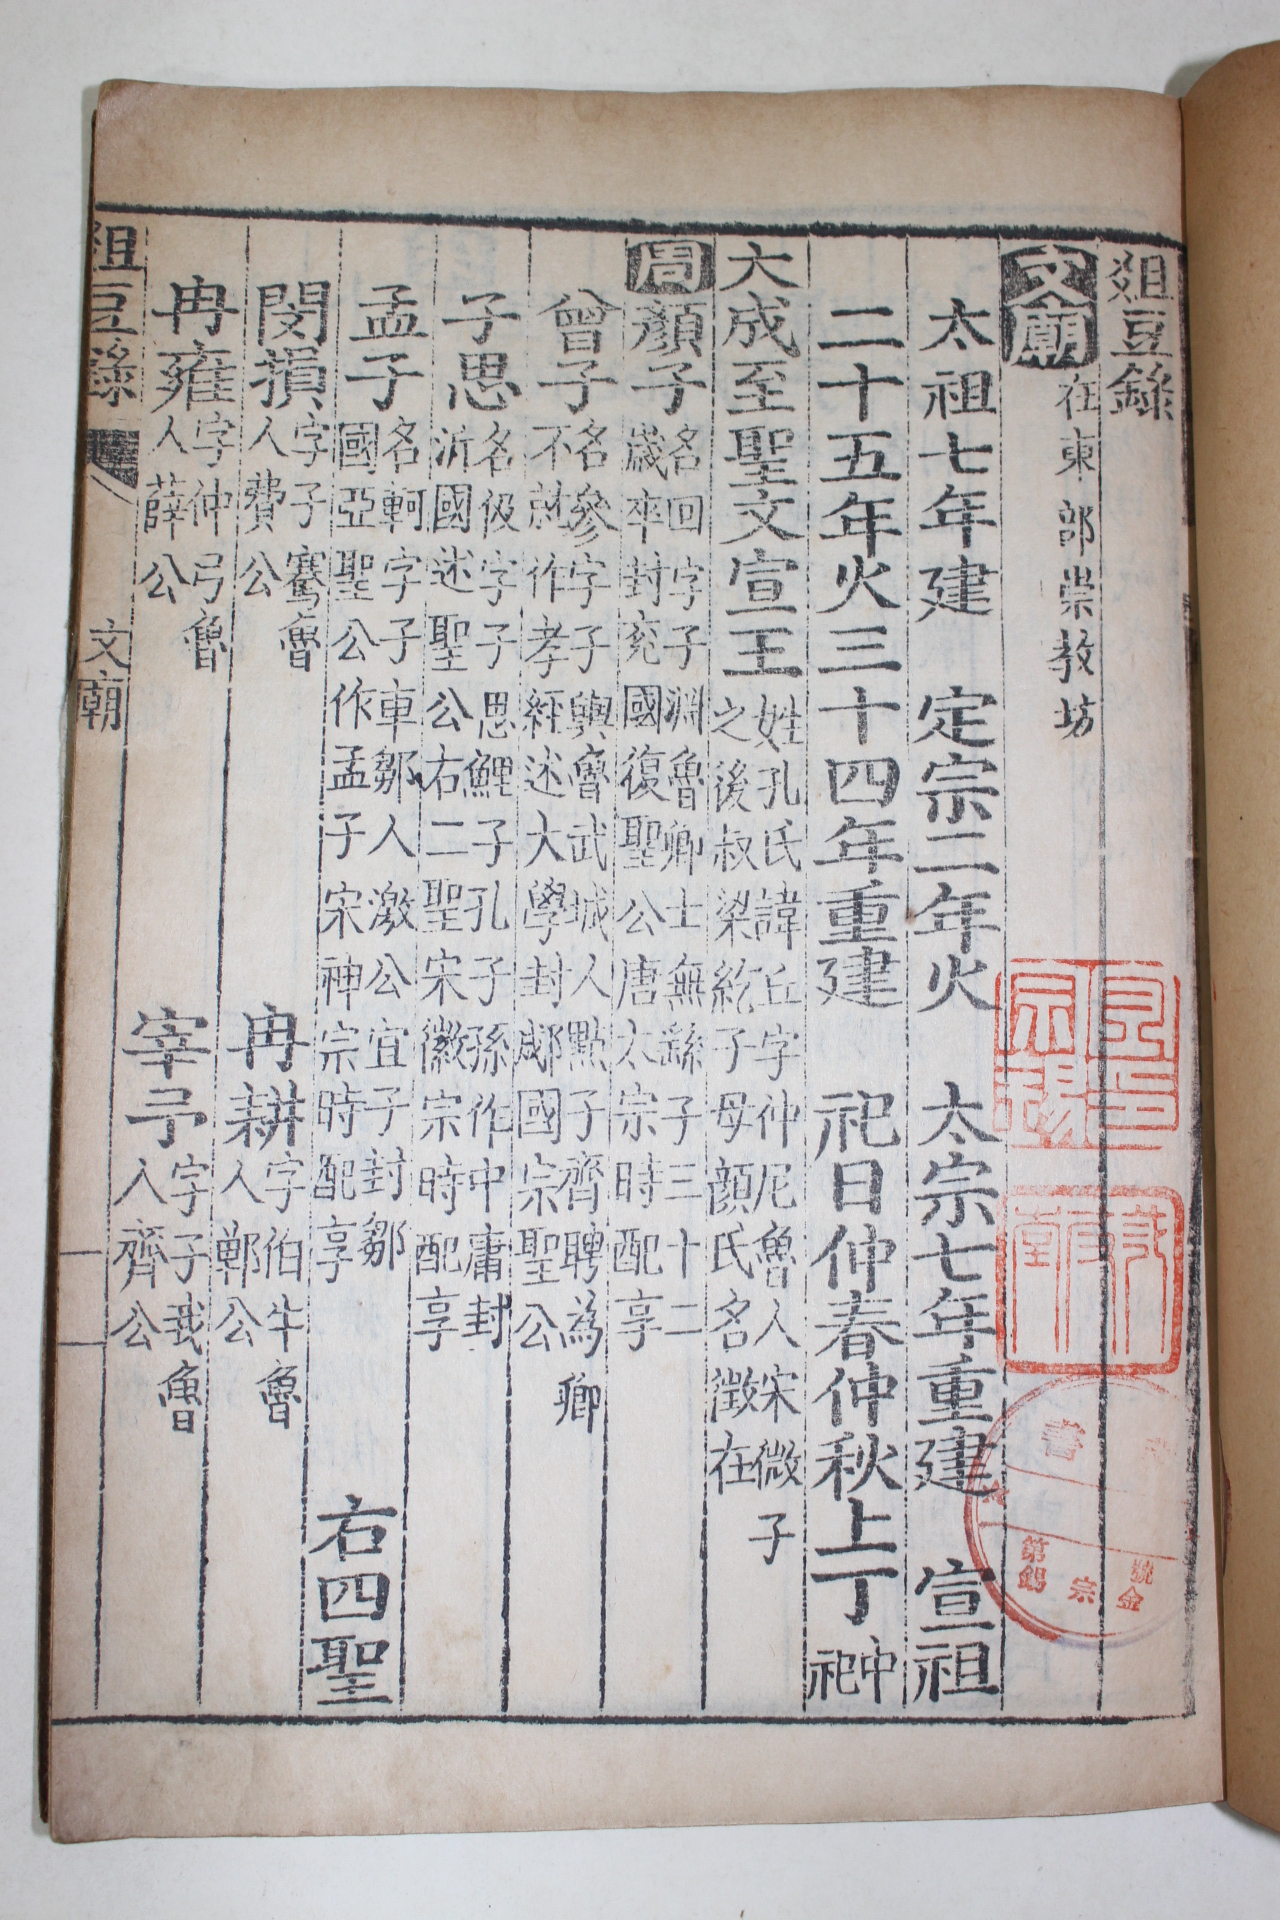 俎豆錄
文廟 在東部崇教坊
太祖七年建 定宗二年火 太宗七年重建 宣祖
二十五年火三十四年重建 祀日仲春仲秋上丁 中祀
大成至聖文宣王 姓孔氏諱丘字仲尼魯人宋微子之後叔梁紇子母顔氏名徵在
周 顏子 名回字子淵魯卿士無繇子三十二歲卒封兗國復聖公唐太宗時配享
曾子 名參字子輿魯武城人點子齊聘為卿不就作孝経述大學封郕國宗聖公
子思 名伋字子思鯉子孔子孫作中庸封沂國述聖公右二聖宋徽宗時配享
孟子 名軻字子車鄒人激公宜子封鄒國亞聖公作孟子宋神宗時配享 右四聖
閔損 字子騫魯人費公 冉耕 字伯牛魯人鄆公
冉雍 字仲弓魯人薛公 宰予 字子我魯人齊公
俎豆錄 文廟 一